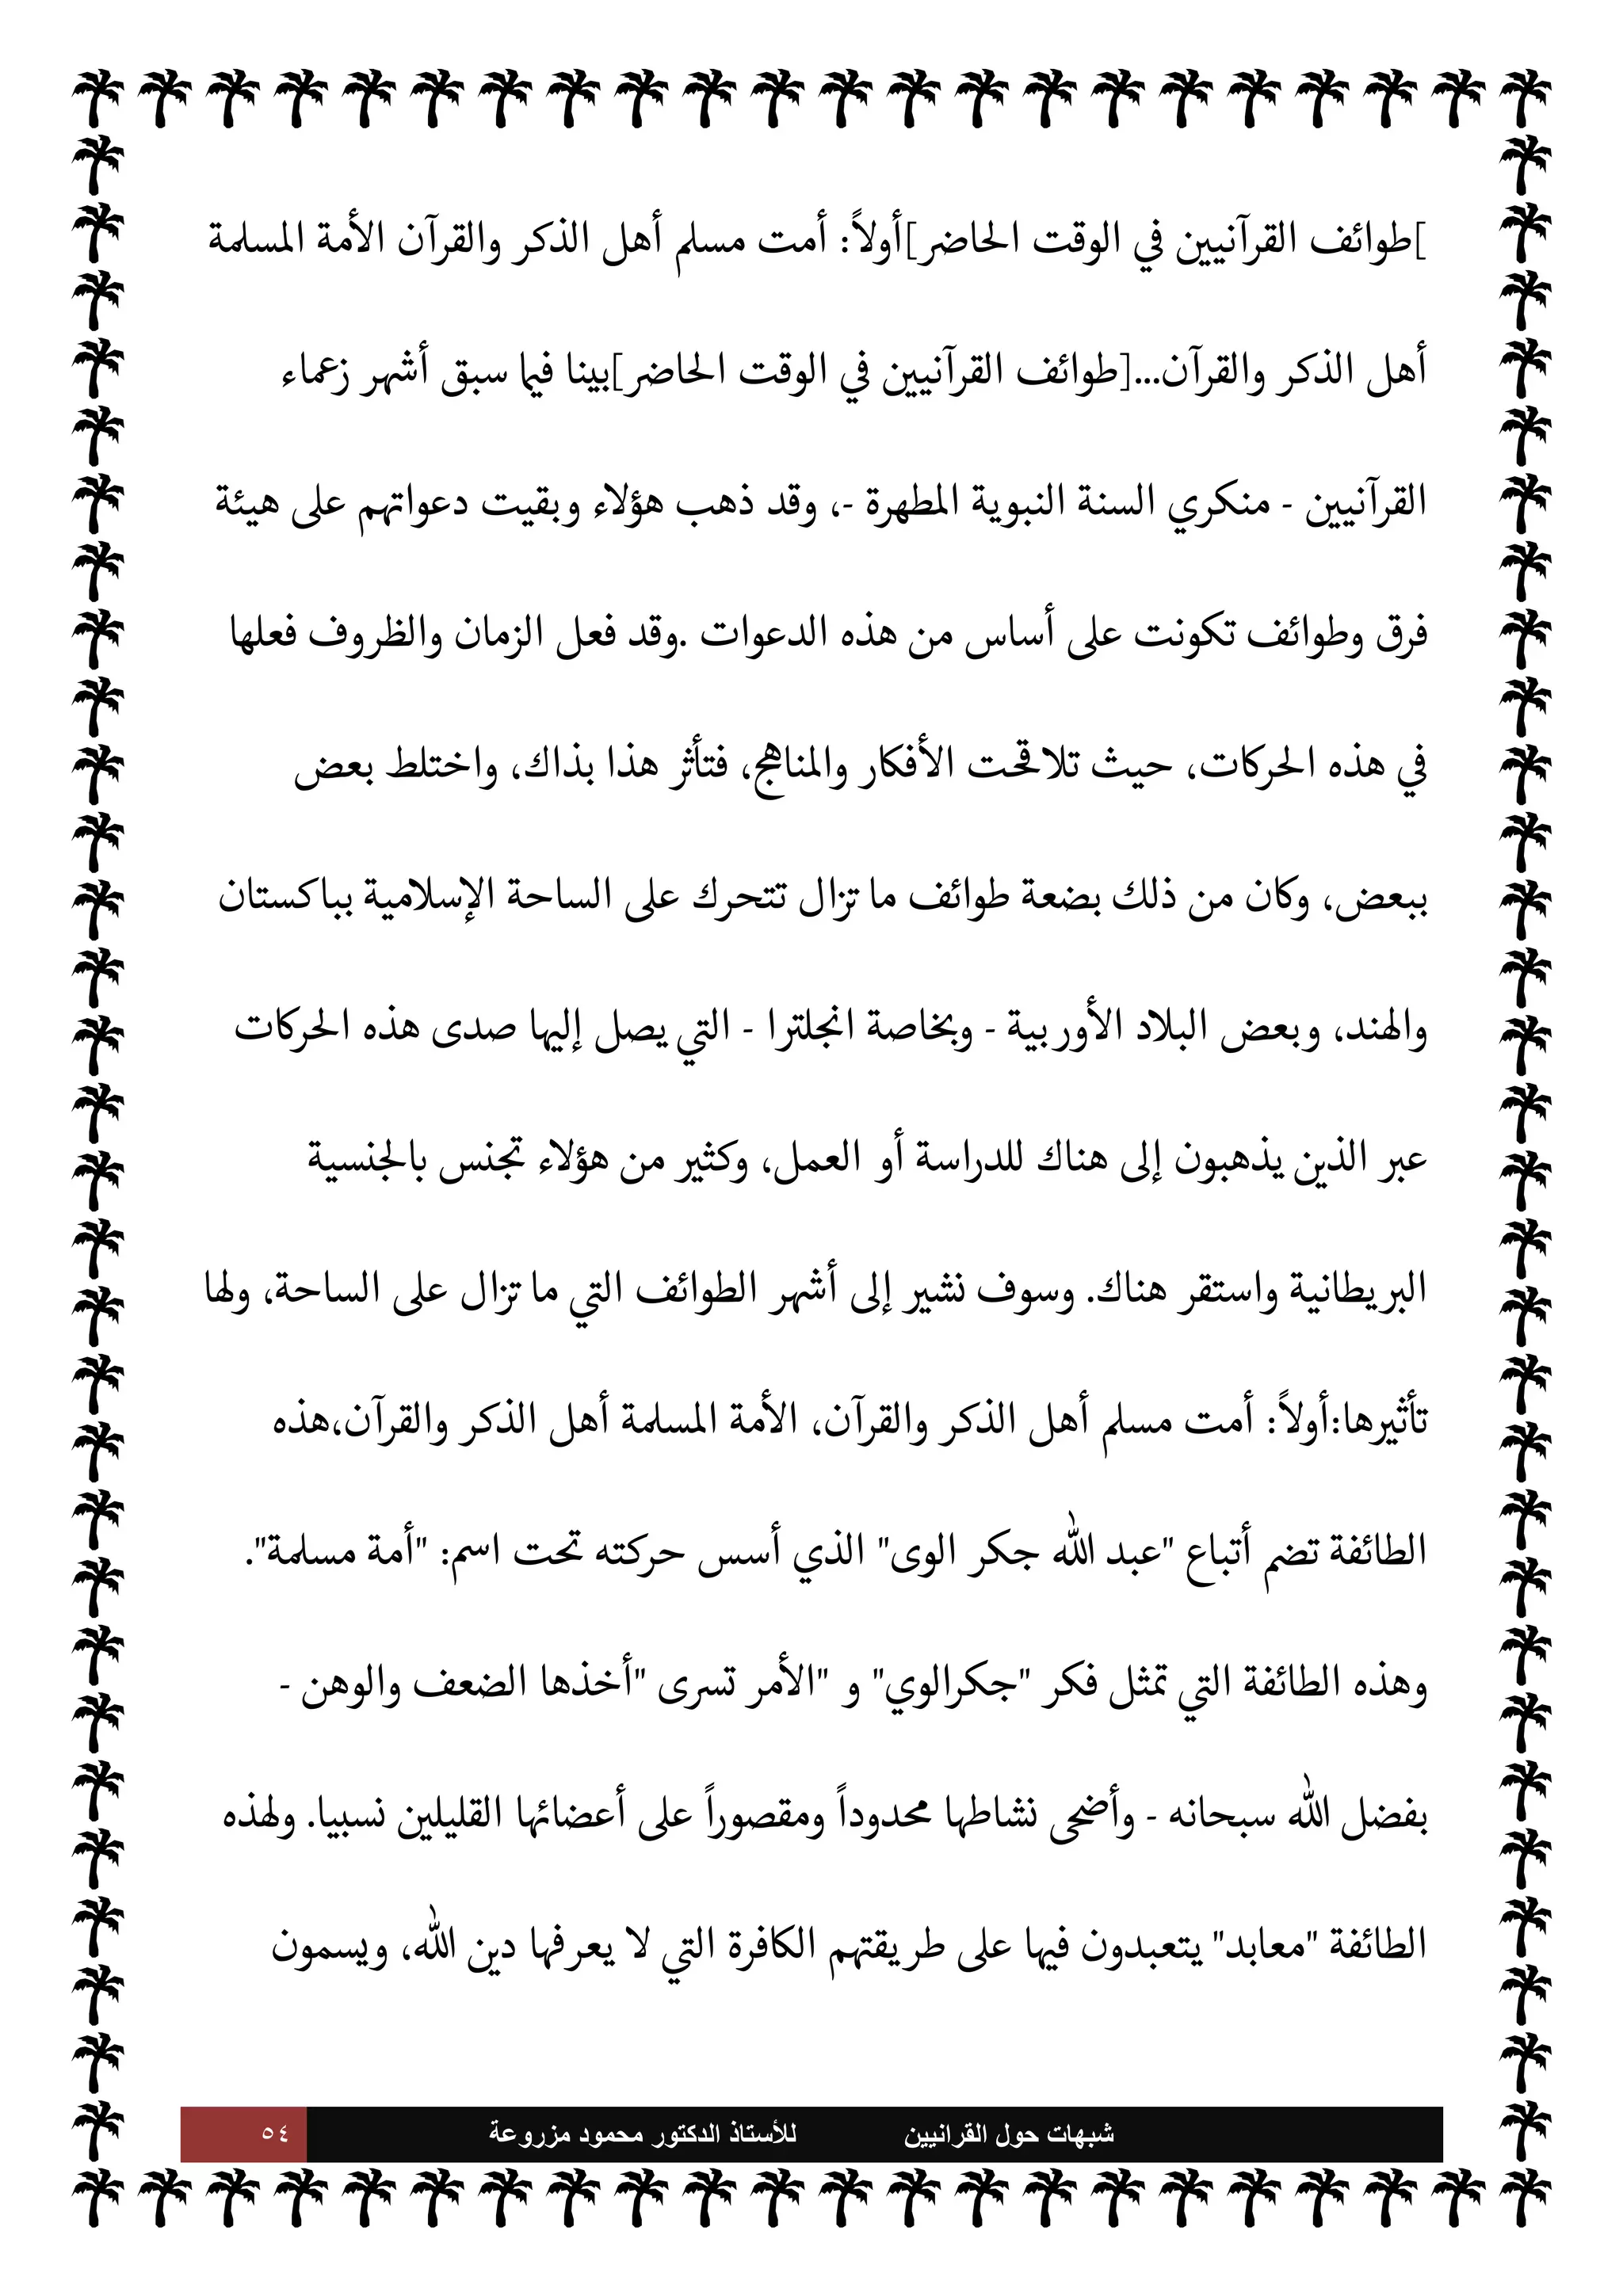 [طوائف القرآنيين في الوقت الحاضر]أولاً: أمت مسلم أهل الذكر والقرآن الأمة المسلمة
أهل الذكر والقرآن...[طوائف القرآنيين في الوقت الحاضر]بينا فيما سبق أشهر زعماء
القرآنيين - منكري السنة النبوية المطهرة -، وقد ذهب هؤلاء وبقيت دعواتهم على هيئة
فرق وطوائف تكونت على أساس من هذه الدعوات .وقد فعل الزمان والظروف فعلها
في هذه الحركات، حيث تلاقحت الأفكار والمناهج، فتأثر هذا بذاك، واختلط بعض
ببعض، وكان من ذلك بضعة طوائف ما تزال تتحرك على الساحة الإسلامية بباكستان
والهند، وبعض البلاد الأوربية - وبخاصة انجلترا - التي يصل إليها صدى هذه الحركات
عبر الذين يذهبون إلى هناك للدراسة أو العمل، وكثير من هؤلاء تجنس بالجنسية
البريطانية واستقر هناك. وسوف نشير إلى أشهر الطوائف التي ما تزال على الساحة، ولها
تأثيرها:أولاً: أمت مسلم أهل الذكر والقرآن، الأمة المسلمة أهل الذكر والقرآن،هذه
الطائفة تضم أتباع "عبد الله جكر الوى" الذي أسس حركته تحت اسم: "أمة مسلمة".
وهذه الطائفة التي تمثل فكر "جكرالوي" و "الأمر تسرى "أخذها الضعف والوهن -
بفضل الله سبحانه - وأضحى نشاطها محدوداً ومقصوراً على أعضائها القليلين نسبيا. ولهذه
الطائفة "معابد" يتعبدون فيها على طريقتهم الكافرة التي لا يعرفها دين الله، ويسمون
شبهات حول القرانيين للأستاذ الدكتور محمود مزروعة ٥٤